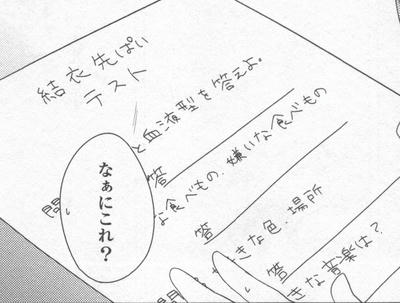 結衣先ぱい
テスト
と血液型を答えよ。
答
な食べもの、嫌いな食べもの
答
きな色・場所
答
きな音楽は?
なぁにこれ?